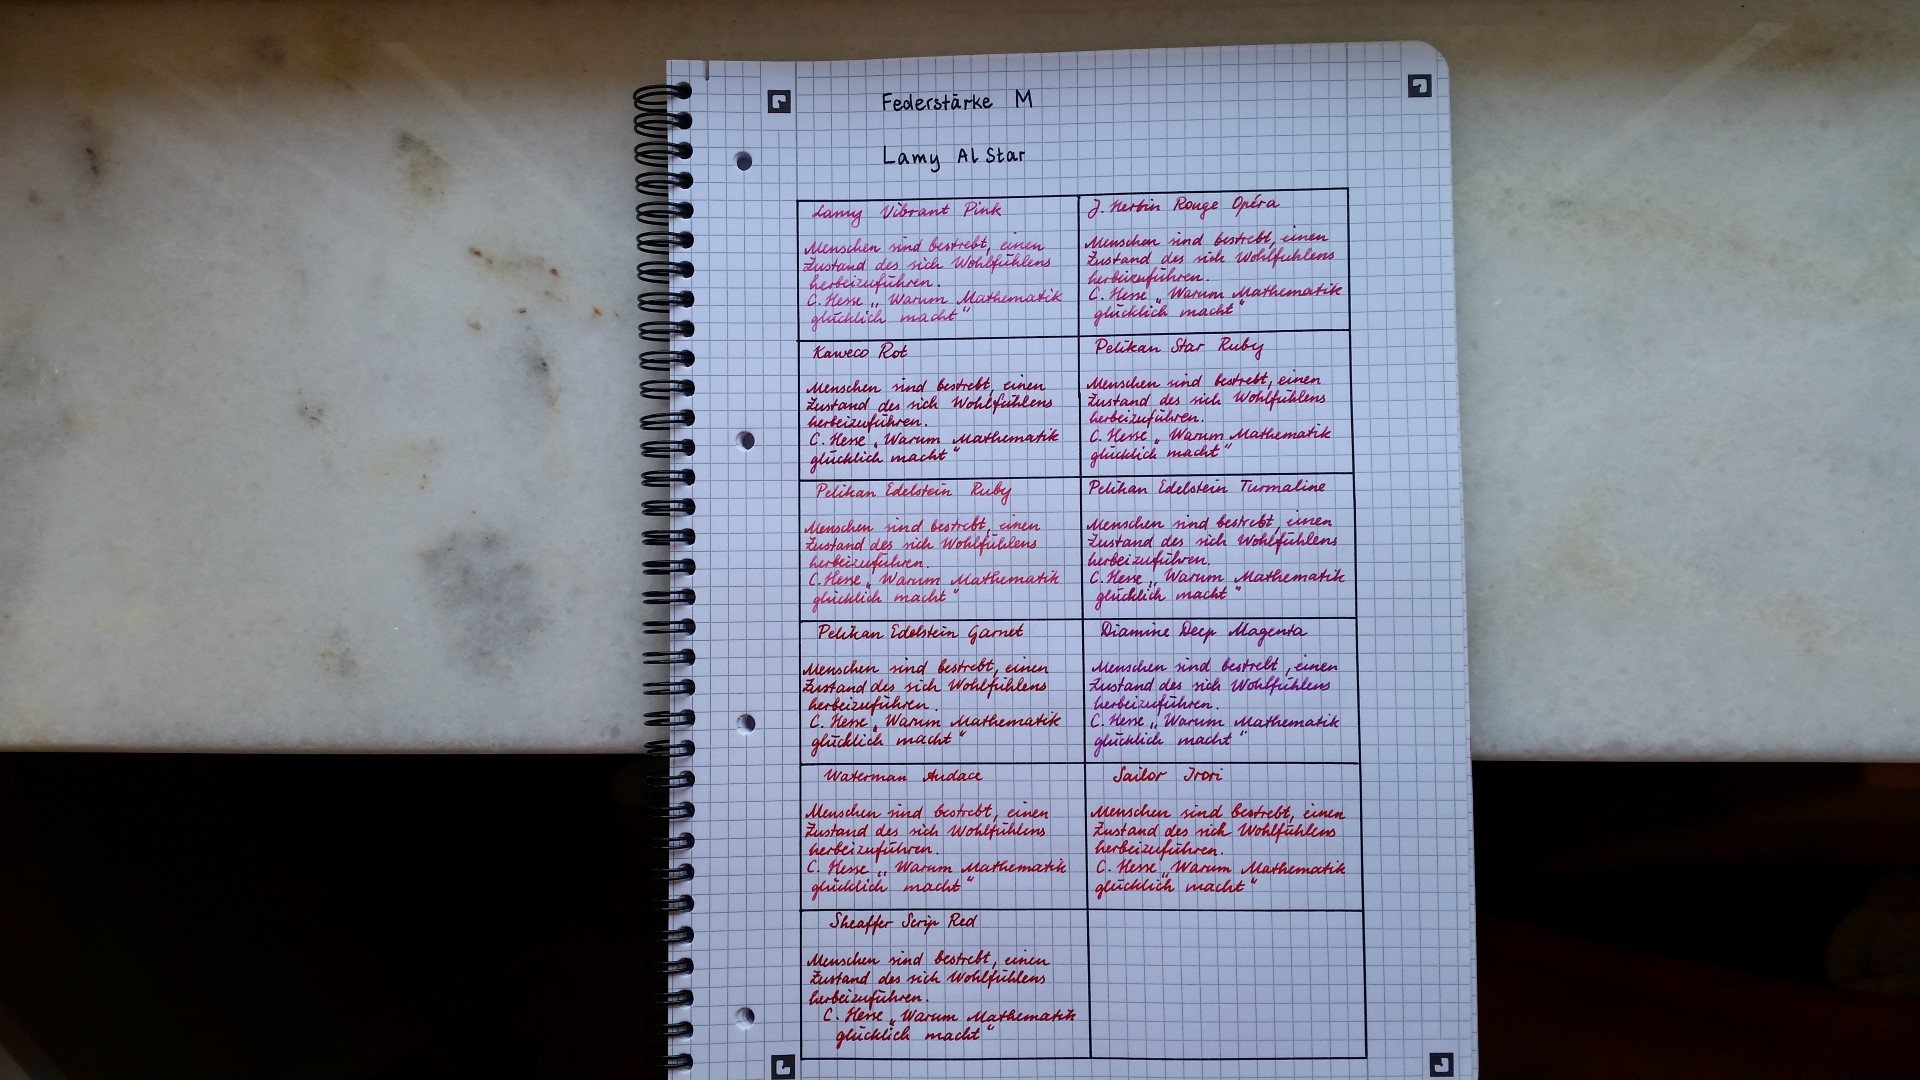 Federstärke M
Lamy AL Star
Lamy Vibrant Pink
Menschen sind bestrebt, einen
Zustand des sich Wohlfühlens
herbeizuführen.
C. Hesse „Warum Mathematik
glücklich macht“
J. Herbin Rouge Opéra
Menschen sind bestrebt, einen
Zustand des sich Wohlfühlens
herbeizuführen.
C. Hesse „Warum Mathematik
glücklich macht“
Kaweco Rot
Menschen sind bestrebt, einen
Zustand des sich Wohlfühlens
herbeizuführen.
C. Hesse „Warum Mathematik
glücklich macht“
Pelikan Star Ruby
Menschen sind bestrebt, einen
Zustand des sich Wohlfühlens
herbeizuführen.
C. Hesse „Warum Mathematik
glücklich macht“
Pelikan Edelstein Ruby
Menschen sind bestrebt, einen
Zustand des sich Wohlfühlens
herbeizuführen.
C. Hesse „Warum Mathematik
glücklich macht“
Pelikan Edelstein Turmaline
Menschen sind bestrebt, einen
Zustand des sich Wohlfühlens
herbeizuführen.
C. Hesse „Warum Mathematik
glücklich macht“
Pelikan Edelstein Garnet
Menschen sind bestrebt, einen
Zustand des sich Wohlfühlens
herbeizuführen.
C. Hesse „Warum Mathematik
glücklich macht“
Diamine Deep Magenta
Menschen sind bestrebt, einen
Zustand des sich Wohlfühlens
herbeizuführen.
C. Hesse „Warum Mathematik
glücklich macht“
Waterman Audace
Menschen sind bestrebt, einen
Zustand des sich Wohlfühlens
herbeizuführen.
C. Hesse „Warum Mathematik
glücklich macht“
Sailor Irori
Menschen sind bestrebt, einen
Zustand des sich Wohlfühlens
herbeizuführen.
C. Hesse „Warum Mathematik
glücklich macht“
Sheaffer Scrip Red
Menschen sind bestrebt, einen
Zustand des sich Wohlfühlens
herbeizuführen.
C. Hesse „Warum Mathematik
glücklich macht“